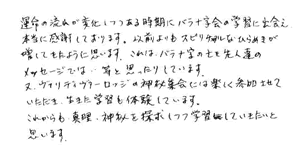 運命の流れが変化しつつある時期にバラナ学会の学習に出会え、
本当に感謝しております。以前よりもスピリチュアルなひらめきが
増してきたように思います。これはバラナ学の士を先人達の
メッセージでは…等と思ったりしています。
又、ヴァリディヴァーロッジの神秘集会には楽しく参加させて
いただき、生きた学習も体験しています。
これからも真理・神秘を探求しつつ学習していきたいと
思います。